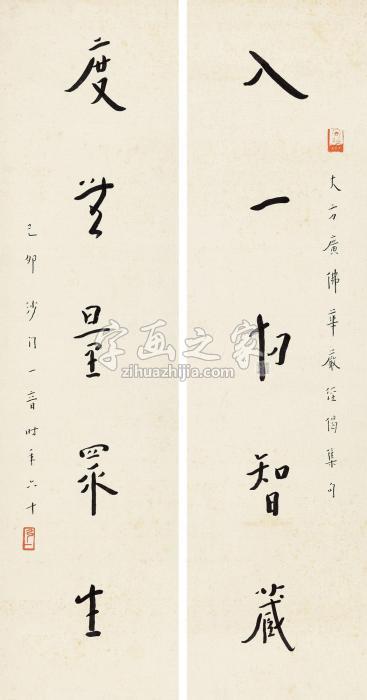 大方廣佛華嚴經偈集句
入一切智藏
度無量眾生
己卯沙門一音時年六十
字画之家
zihuazhijia.com